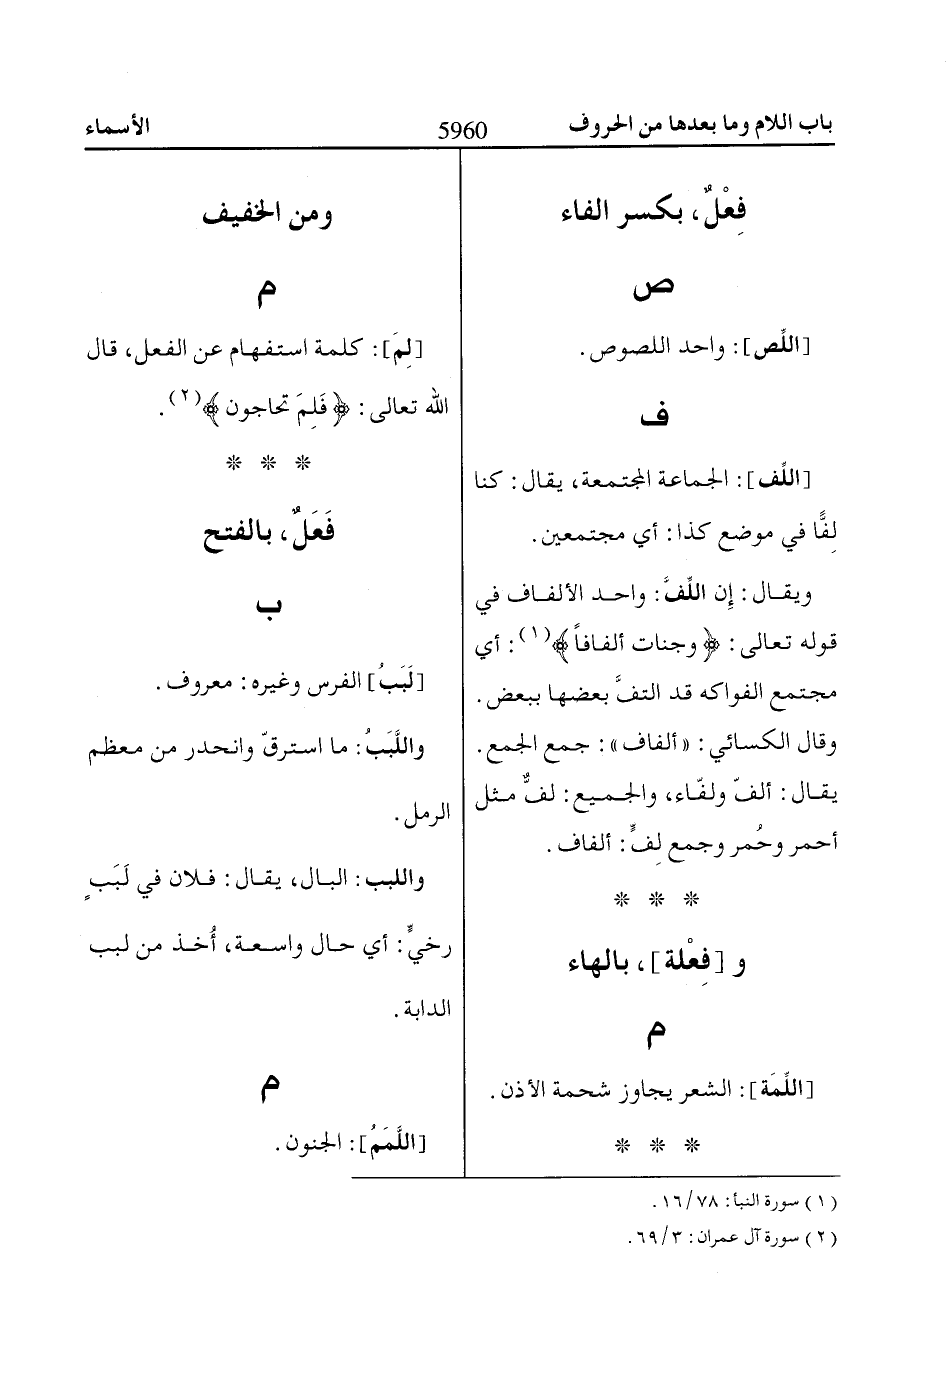 باب اللام وما بعدها من الحروف 5960 الأسماء
فِعْلٌ، بكسر الفاء
ص
[اللِّص]: واحد اللصوص.
ف
[اللِّف]: الجماعة المجتمعة، يقال: كنا
لِفًّا في موضع كذا: أي مجتمعين.
ويقال: إن اللِّفَّ: واحد الألفاف في
قوله تعالى: ﴿وجنات ألفافاً﴾(١): أي
مجتمع الفواكه قد التفَّ بعضها ببعض.
وقال الكسائي: «ألفاف»: جمع الجمع.
يقال: ألفّ ولفّاء، والجميع: لفٌّ مثل
أحمر وحُمر وجمع لِفٍّ: ألفاف.
* * *
و [فِعْلة]، بالهاء
م
[اللِّمَة]: الشعر يجاوز شحمة الأذن.
* * *
ومن الخفيف
م
[لِمَ]: كلمة استفهام عن الفعل، قال
الله تعالى: ﴿فَلِمَ تحاجون﴾(٢).
* * *
فَعَلٌ، بالفتح
ب
[لَبَبُ] الفرس وغيره: معروف.
واللَّبَبُ: ما استرقّ وانحدر من معظم
الرمل.
واللبب: البال، يقال: فلان في لَبَبٍ
رخيٍّ: أي حال واسعة، أُخذ من لبب
الدابة.
م
[اللَّمَمُ]: الجنون.
(١) سورة النبأ: ١٦/٧٨.
(٢) سورة آل عمران: ٦٩/٣.